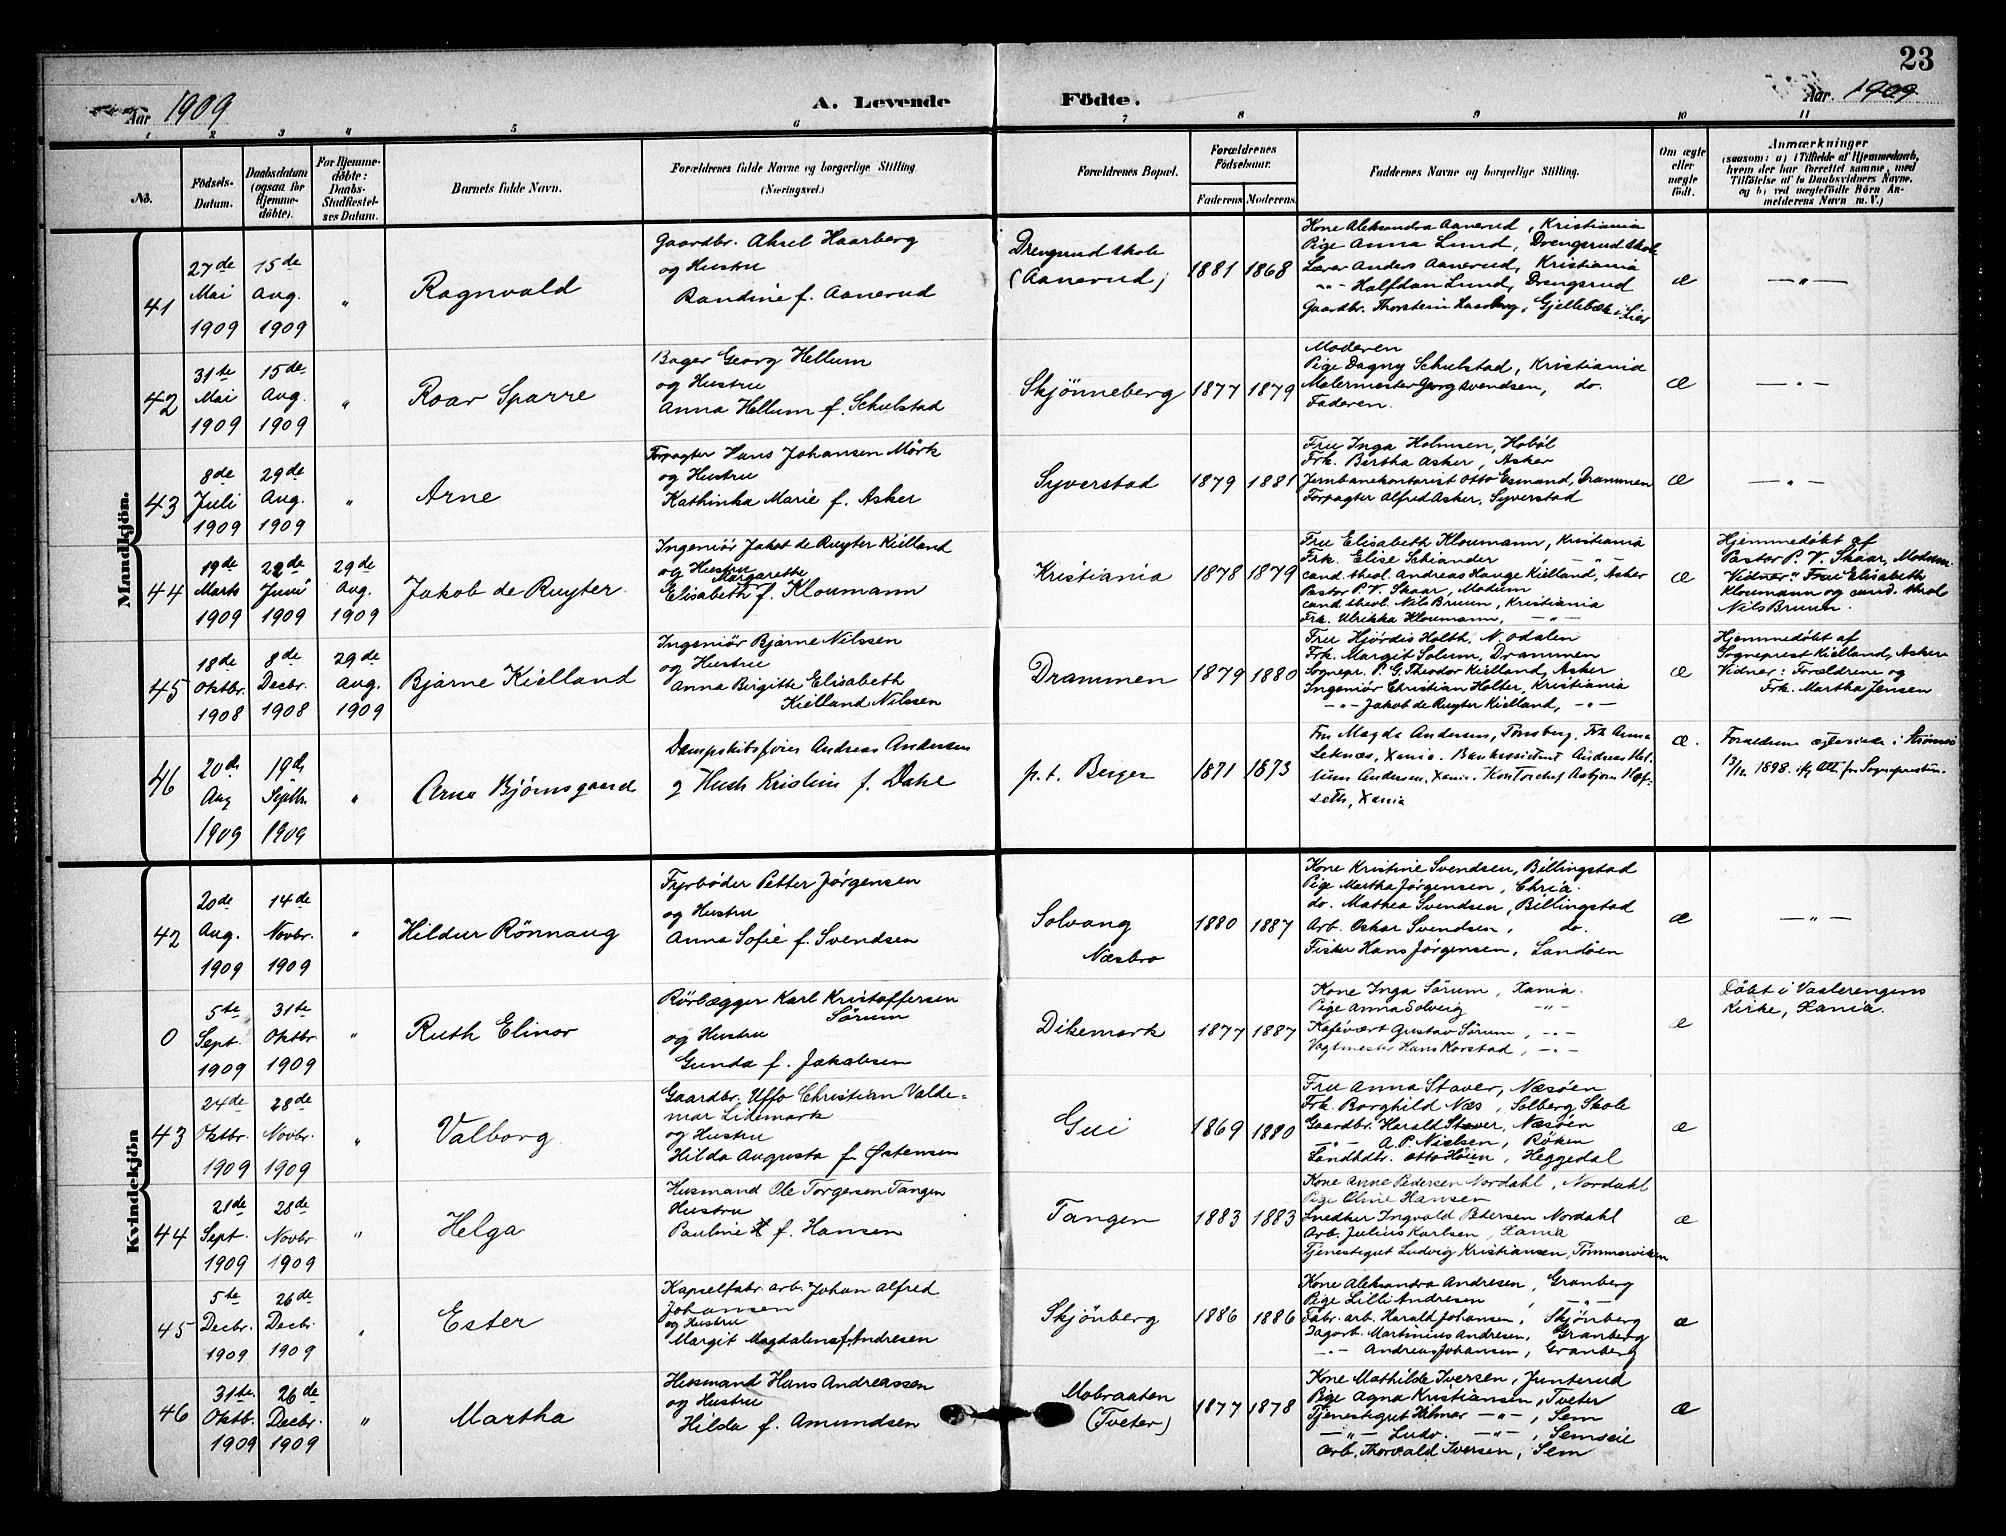 23
Aar 1909
A. Levende
Födte.
Aar 1909
1 2 3 4 5 6 7 8 9 10 11
No.
Födsels-
Datum.
Daabsdatum
(ogsaa for
Hjemme-
döbte).
For Hjemme-
döbte:
Daabs-
Stadfæstel-
ses Datum.
Barnets fulde Navn.
Forældrenes fulde Navne og borgerlige Stilling
(Næringsvei.)
Forældrenes Bopæl.
Forældrenes
Födselsaar.
Faderens
Moderens
Faddernes Navne og borgerlige Stilling.
Om ægte
eller
uægte
födt.
Anmærkninger
(saasom: a) i Tilfælde af Hjemmedaab,
hvem der har forrettet samme, med
Tilföielse af to Daabsvidners Navne,
og b) ved uægtefödte Börn An-
melderens Navn m. V.)
Mandkjön.
41
27de
Mai
1909
15de
Aug.
1909
"
Ragnvald
Gaardbr. Aksel Haarberg
og Hustru
Randine f. Aanerud
Drengsrud skole
(Aanerud)
1881
1868
Kone Aleksandra Aanerud, Kristiania
Pige Anna Lund, Drengsrud skole
Lærer Anders Aanerud, Kristiania
-"- Halfdan Lund, Drengsrud
Gaardbr. Thorstein Haarberg, Gjellebæk i Lier
æ
—"—
42
31te
Mai
1909
15de
Aug.
1909
"
Roar Sparre
Bager Georg Hellum
og Hustru
Anna Hellum f. Schulstad
Skjönneberg
1877
1879
Moderen
Pige Dagny Schulstad, Kristiania
Malermester Georg Svendsen, do.
Faderen.
æ
—"—
43
8de
Juli
1909
29de
Aug.
1909
"
Arne
Forpagter Hans Johansen Mörk
og Hustru
Kathinka Marie f. Asker
Syverstad
1879
1881
Fru Inga Holmsen, Hobøl
Frk. Bertha Asker, Asker
Jernbanekontorist Otto Esmand, Drammen
Forpagter Alfred Asker, Syverstad
æ
—"—
44
19de
Marts
1909
22de
Juni
1909
29de
Aug.
1909
Jakob de Ruyter
Ingeniör Jakob de Ruyter Kielland
og Hustru
Margarette
Elisabeth f. Kloumann
Kristiania
1878
1879
Fru Elisabeth Kloumann, Kristiania
Frk. Elise Schiander, —"—
cand. theol. Andreas Hauge Kielland, Asker
Pastor P. V. Skaar, Modum
cand. theol. Nils Bruun, Kristiania
Frk. Ulrikka Kloumann, —"—
æ
Hjemmedöbt af
Pastor P. V. Skaar, Modum
Vidner: Frue Elisabeth
Kloumann og cand. theol
Nils Bruun.
45
18de
Oktbr.
1908
8de
Decbr.
1908
29de
Aug.
1909
Bjarne Kielland
Ingeniör Bjarne Nilssen
og Hustru
Anna Birgitte Elisabeth
Kielland Nilssen
Drammen
1879
1880
Fru Hjördis Holth, N. Odalen
Frk. Margit Solum, Drammen
Sognepr. P. G. Theodor Kielland, Asker
Ingeniör Christian Holter, Kristiania
—"— Jakob de Ruyter Kielland, —"—
æ
Hjemmedöbt af
Sogneprest Kielland, Asker
Vidner: Forældrene og
Frk. Martha Jensen
46
20de
Aug
1909
19de
Septbr.
1909
"
Arne Bjørnsgaard
Dampskibsfører Andreas Andersen
og Hustr Kristine f. Dahl
p.t. Berger
1871
1873
Fru Magda Andersen, Tønsberg. Frk Anna
Leknæs, Xania. Bankassistent Andreas Vil-
lium Andersen, Xania. Kontorchef Asbjørn Hof-
seth, Xania
æ.
Forældrene ægteviede i Strømsø
13/12 1898 Att. fra Sognepresten.
Kvindekjön
42
20de
Aug.
1909
14de
Novbr.
1909
"
Hildur Rönnaug
Fyrböder Petter Jörgensen
og Hustru
Anna Sofie f. Svendsen
Solvang
Næsbro
1880
1887
Kone Kristine Svendsen, Billingstad
Pige Martha Jörgensen, Chria.
do. Mathea Svendsen, Billingstad
Arb. Oskar Svendsen, do.
Fisker Hans Jörgensen, Landöen
æ
—"—
0
5te
Sept.
1909
31te
Oktbr.
1909
"
Ruth Elinor
Rörlægger Karl Kristoffersen
Sörum
og Hustru
Gunda f. Jakobsen
Dikemark
1877
1887
Kone Inga Sörum, Xania.
Pige Anna Solveig —"—
Kafévært Gustav Sörum, —"—
Vagtmester Hans Korstad, —"—
æ
Döbt i Vaalerengens
Kirke, Xania.
43
24de
Oktbr.
1909
28de
Novbr.
1909
"
Valborg
Gaardbr. Uffo Christian Valde-
mar Lidemark
og Hustru
Hilda Augusta f. Østensen
Gui
1869
1880
Fru Anna Staver, Næsöen
Frk. Borghild Næs, Solberg Skole
Gaardbr. Harald Staver, Næsöen
—"— A. P. Nielsen, Röken
Landhdl. Otto Höien, Heggedal
æ
44
21de
Sept.
1909
28de
Novbr
1909
"
Helga
Husmand Ole Torgersen Tangen
Hustru
Pauline H f. Hansen
Tangen
1883
1883
Kone Anne Pedersen Nordahl, Nordahl
Pige Oline Hansen
Snedker Ingvald Petersen Nordahl
Arb. Julius Karlsen, Xania
Tjenestegut Ludvig Kristiansen, Tömmerviken
æ
45
5te
Decbr.
1909
26de
Decbr.
1909
"
Ester
Kapselfabr. arb. Johan Alfred
Johansen
og Hustru
Margit Magdalena f. Andresen
Skjönberg
1886
1886
Kone Aleksandra Andresen, Granberg
Pige Lilli Andresen, —"—
Fabr. arb. Harald Johansen, Skjönberg
Dagarb. Martinius Andresen, Granberg
—"— Andreas Johansen, Granberg
æ
46
31te
Oktb.
1909
26de
Decbr.
1909
"
Martha
Husmand Hans Andreassen
og Hustru
Hilda f. Amundsen
Mobraaten
(Tveter)
1877
1878
Kone Mathilde Iversen, Junterud
Pige Agna Kristiansen, Tveter
Tjenestegut Hilmar —"—, Sem
—"— Ludv. —"—, Semseie
Arb. Thorvald Iversen, Sem
æ